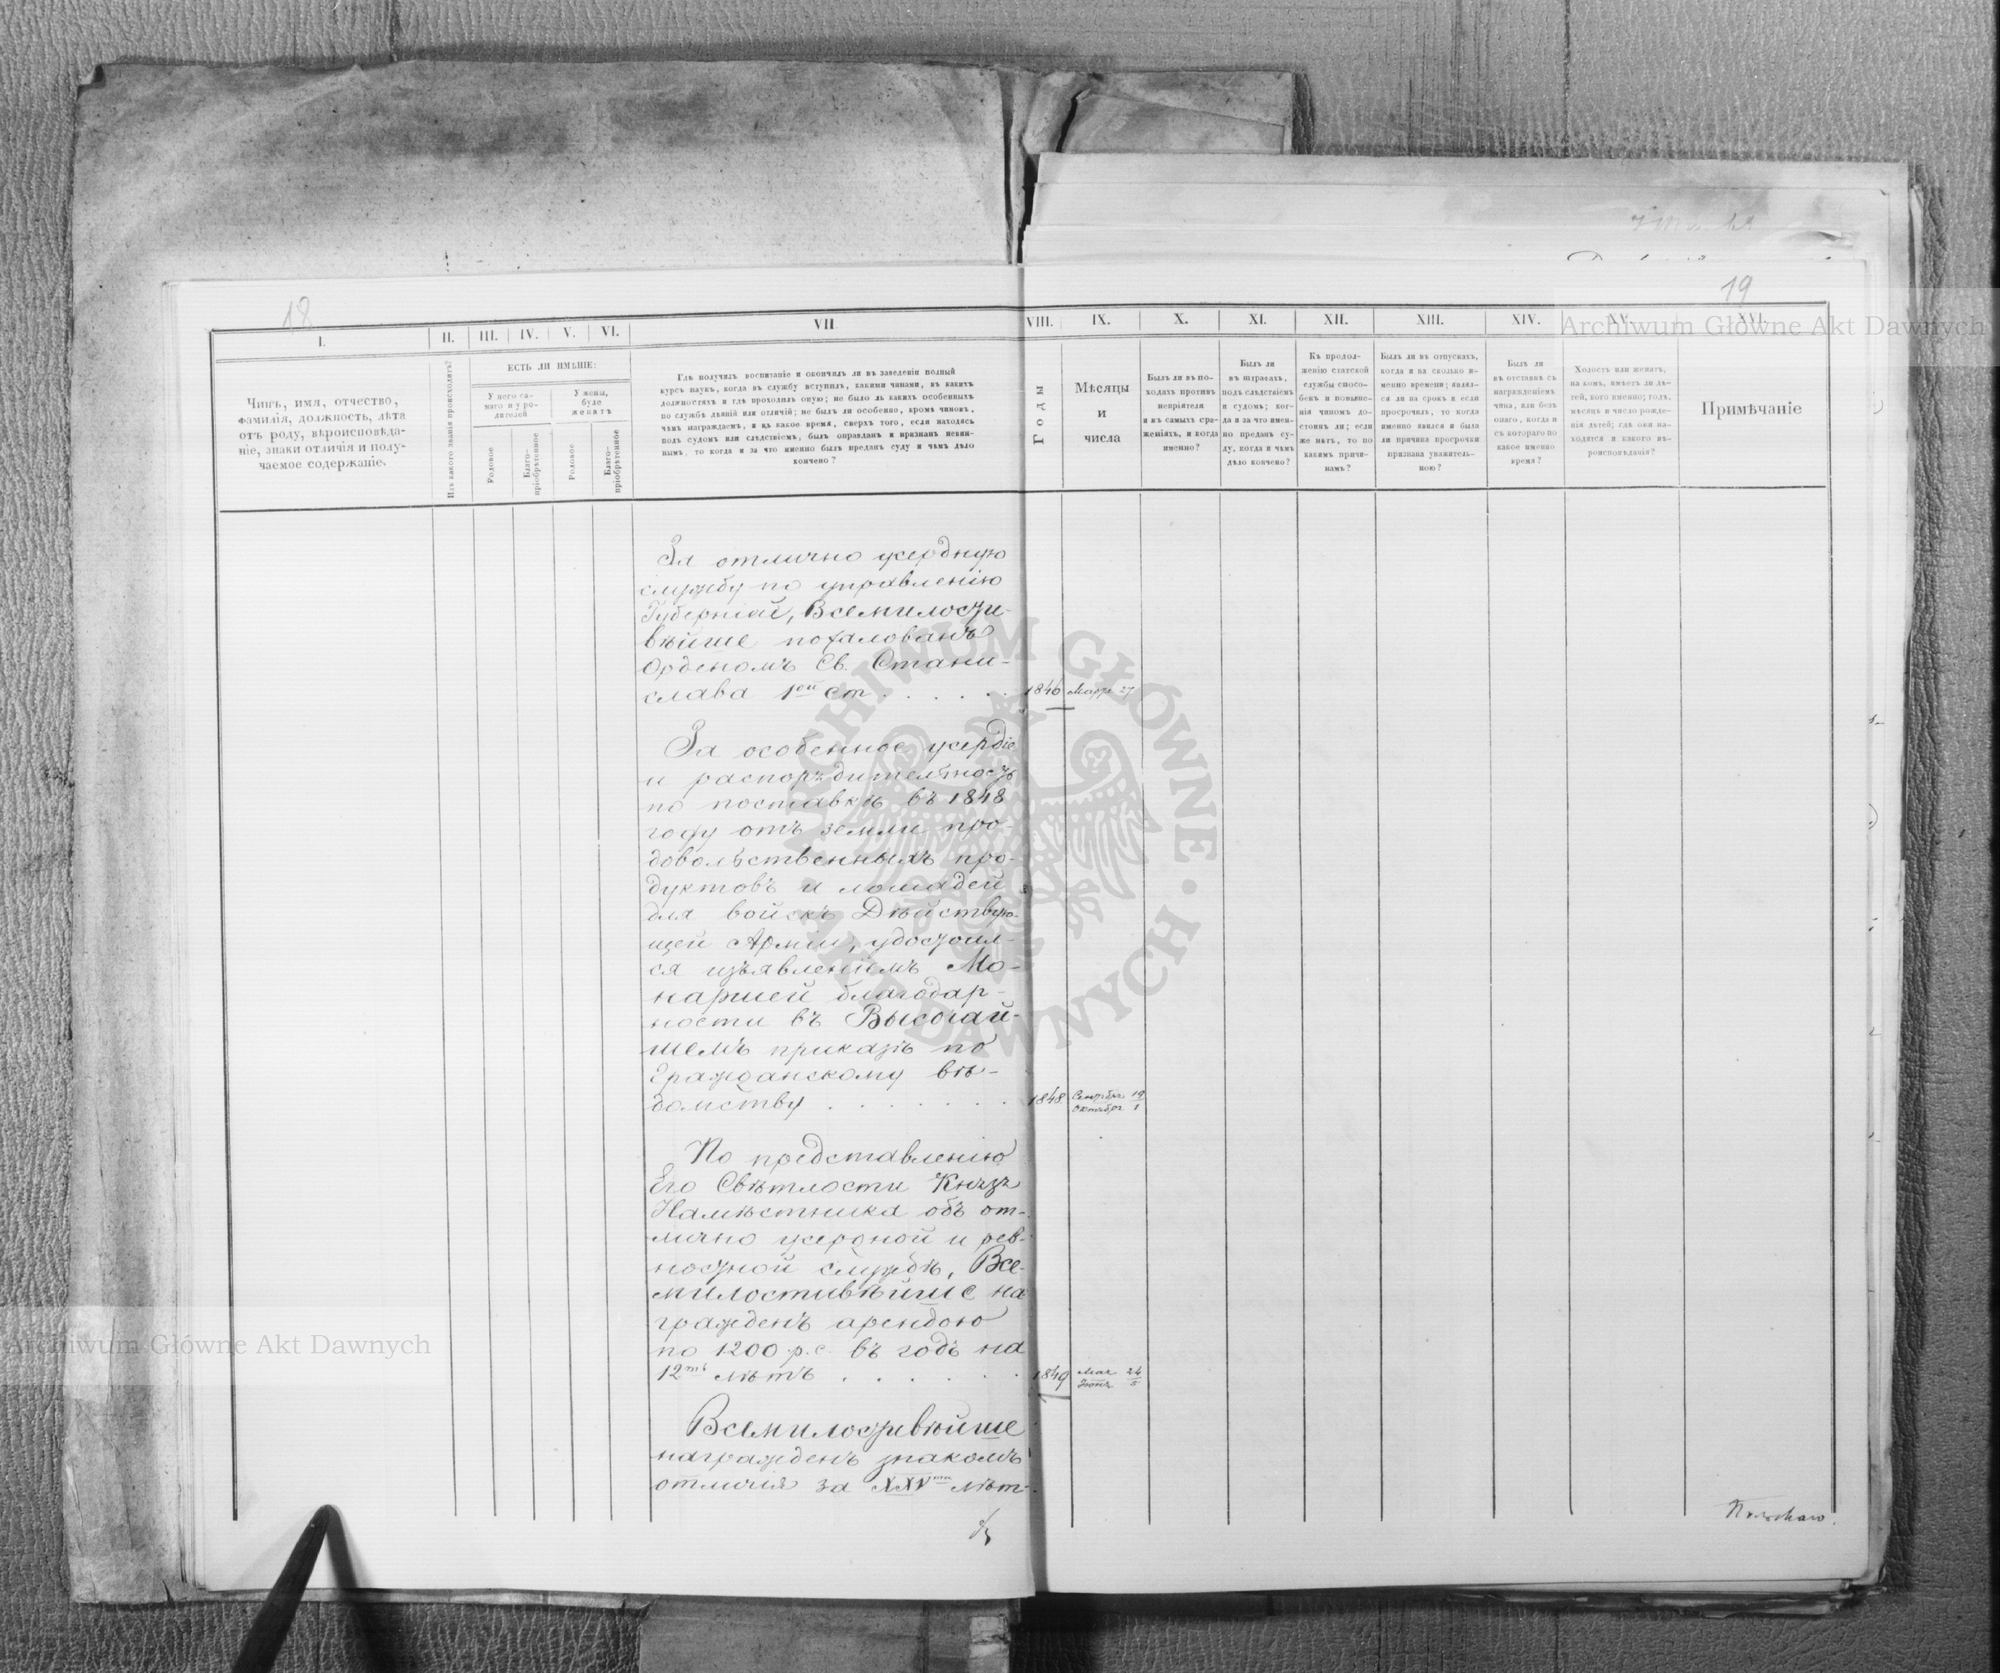 18
19
I.
II.
III.
IV.
V.
VI.
VII.
VIII.
IX.
X.
XI.
XII.
XIII.
XIV.
XV.
XVI.
Чинъ, имя, отчество,
фамилія, должность, лѣта
отъ роду, вѣроисповѣда-
ніе, знаки отличія и полу-
чаемое содержаніе.
Изъ какого званія происходитъ?
ЕСТЬ ЛИ ИМѢНІЕ:
У него са-
маго и у ро-
дителей
У жены,
буде
женатъ
Родовое
Благо-
пріобрѣтенное
Родовое
Благо-
пріобрѣтенное
Гдѣ получилъ воспитаніе и окончилъ ли въ заведеніи полный
курсъ наукъ, когда въ службу вступилъ, какими чинами, въ какихъ
должностяхъ и гдѣ проходилъ оную; не было ль какихъ особенныхъ
по службѣ дѣяній или отличій; не былъ ли особенно, кромѣ чиновъ,
чѣмъ награждаемъ, и въ какое время, сверхъ того, если находясь
подъ судомъ или слѣдствіемъ, былъ оправданъ и признанъ невин-
нымъ, то когда и за что именно былъ преданъ суду и чѣмъ дѣло
кончено?
Годы
Мѣсяцы
и
числа
Былъ ли въ по-
ходахъ противъ
непріятеля
и въ самыхъ сра-
женіяхъ, и когда
именно?
Былъ ли
въ штрафахъ,
подъ слѣдствіемъ
и судомъ; ког-
да и за что имен-
но преданъ су-
ду, когда и чѣмъ
дѣло кончено?
Къ продол-
женію статской
службы спосо-
бенъ и повыше-
нія чиномъ до-
стоинъ ли; если
же нѣтъ, то по
какимъ причи-
намъ?
Былъ ли въ отпускахъ,
когда и на сколько и-
менно времени; являл-
ся ли на срокъ и если
просрочилъ, то когда
именно явился и была
ли причина просрочки
признана уважитель-
ною?
Былъ ли
въ отставкѣ съ
награжденіемъ
чина, или безъ
онаго, когда и
съ котораго по
какое именно
время?
Холостъ или женатъ,
на комъ, имѣетъ ли дѣ-
тей, кого именно; годъ,
мѣсяцъ и число рожде-
нія дѣтей; гдѣ они на-
ходятся и какого вѣ-
роисповѣданія?
Примѣчаніе
За отлично усердную
службу по управленію
Губерніей, Всемилости-
вѣйше пожалованъ
Орденомъ Св. Стани-
слава 1ой ст . . . . . 1846 Марта 27
За особенное усердіе
и распорядительность
по поставкѣ въ 1848
году отъ земли про-
довольственныхъ про-
дуктовъ и лошадей
для войскъ Дѣйствую-
щей Арміи, удостоил-
ся изъявленіемъ Мо-
наршей благодар-
ности въ Высочай-
шемъ приказѣ по
Гражданскому вѣ-
домству . . . . . . 1848 Сентября 19
Октября 1
По представленію
Его Свѣтлости Князя
Намѣстника объ от-
лично усердной и рев-
ностной службѣ, Все-
милостивѣйше на
гражденъ арендою
по 1200 р. с. въ годъ на
12ть лѣтъ . . . . . . 1849 Мая 24
Іюня 5
Всемилостивѣйше
награжденъ знакомъ
отличія за XXV лѣт-
Archiwum Główne Akt Dawnych
Archiwum Główne Akt Dawnych
ARCHIWUM GŁÓWNE · AKT DAWNYCH ·